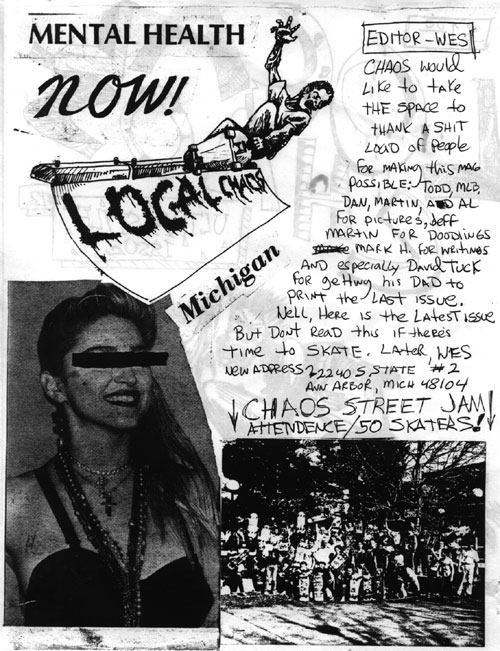 MENTAL HEALTH
NOW!
LOCAL CHAOS
Michigan
EDITOR-WES
CHAOS WOULD
LIKE TO TAKE
THE SPACE TO
THANK A SHIT
LOAD OF PEOPLE
FOR MAKING THIS MAG
POSSIBLE: TODD, MLB,
DAN, MARTIN, AND AL
FOR PICTURES, JEFF
MARTIN FOR DOODLINGS
MARK H. FOR WRITINGS
AND especially DAVID TUCK
FOR getting his DAD to
PRINT the LAST ISSUE.
Well, Here is the LATEST ISSUE
BUT DONT READ this IF there's
time to SKATE. LATER, WES
NEW ADDRESS? 2240 S. STATE #2
ANN ARBOR, MICH 48104
↓CHAOS STREET JAM!
ATTENDENCE/50 SKATERS!↓